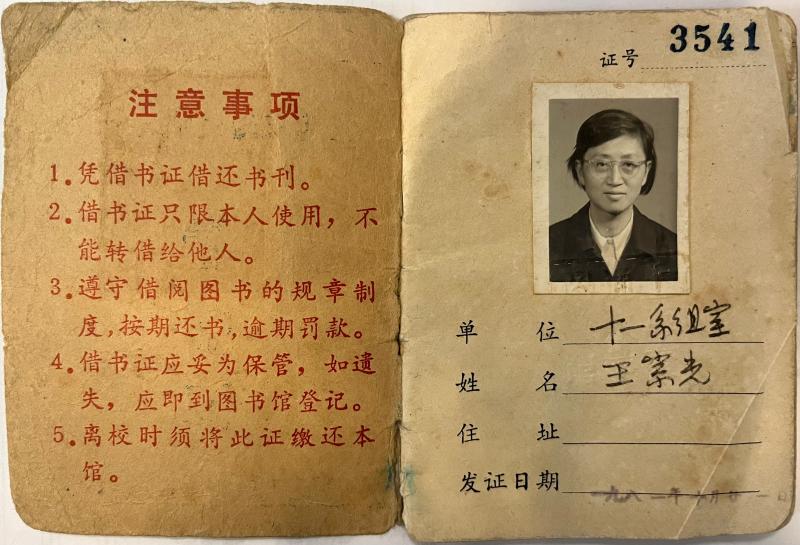 注意事项
1.凭借书证借还书刊。
2.借书证只限本人使用，不
能转借给他人。
3.遵守借阅图书的规章制
度,按期还书,逾期罚款。
4.借书证应妥为保管，如遗
失，应即到图书馆登记。
5.离校时须将此证缴还本
馆。
证号 3541
单位 十一系组室
姓名 王崇光
住址
发证日期 一九八一年 月 日